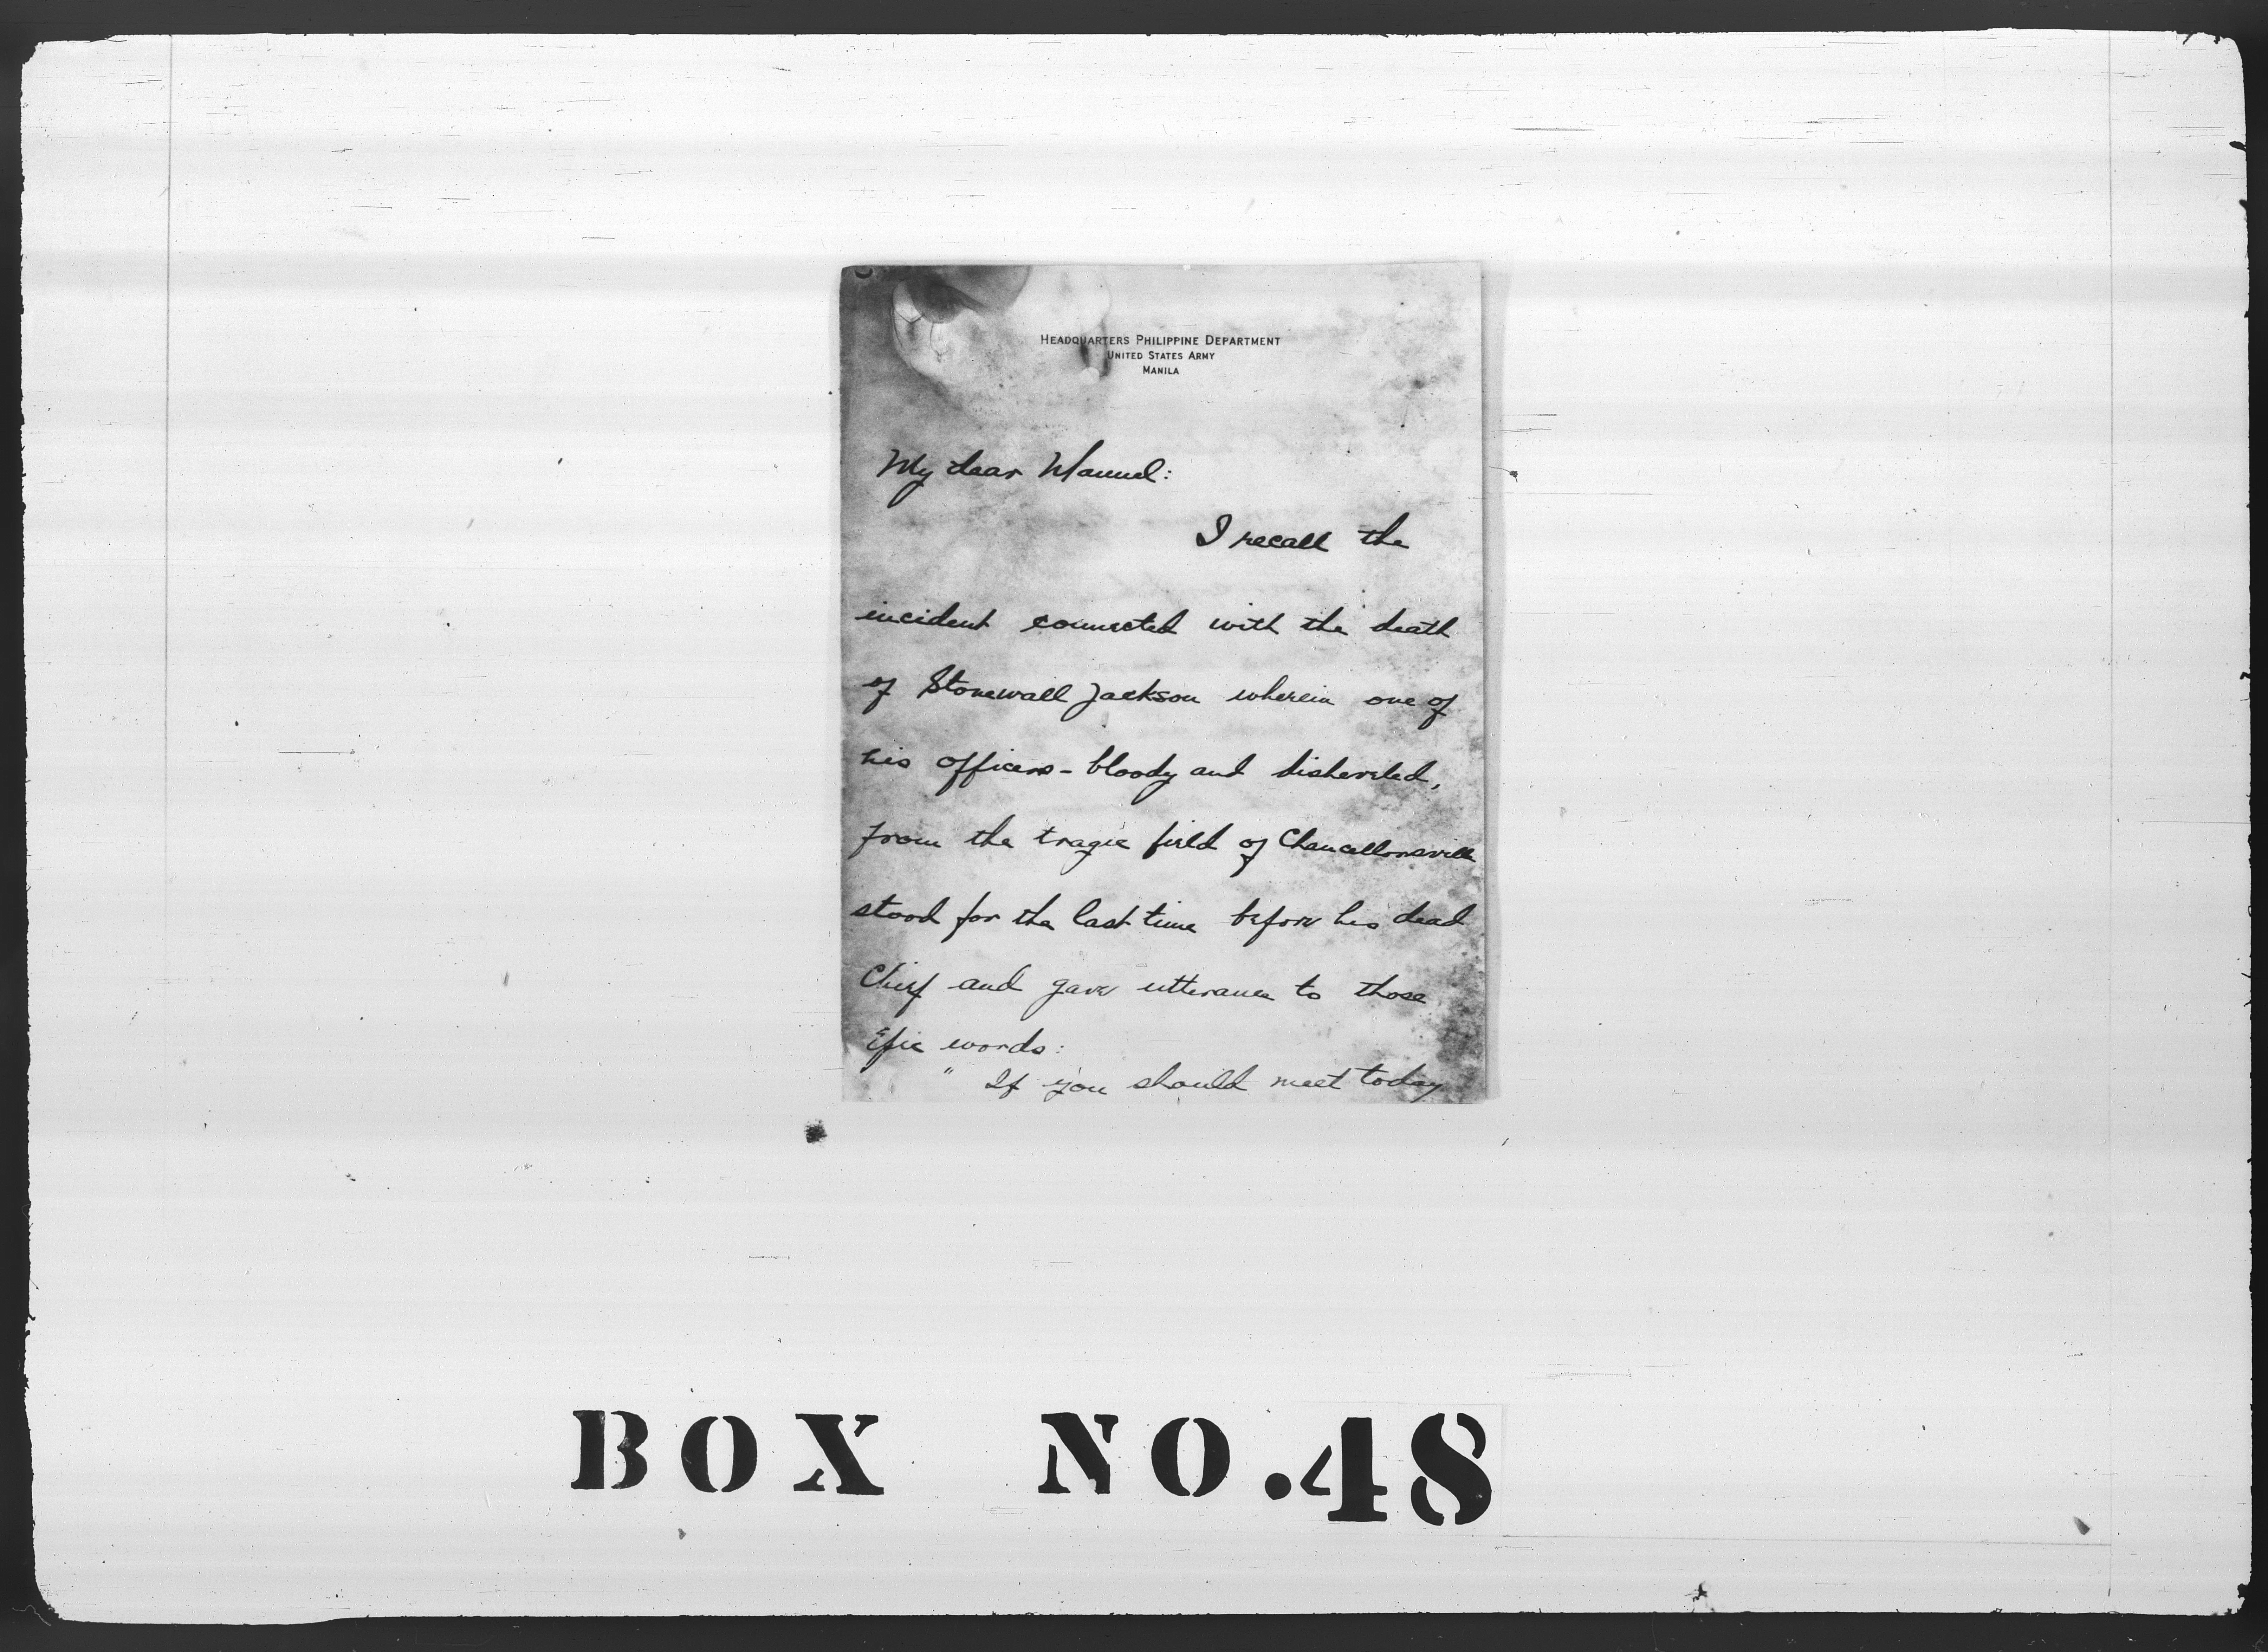 HEADQUARTERS PHILIPPINE DEPARTMENT
UNITED STATES ARMY
MANILA
My dear Manuel:
I recall the
incident connected with the death
of Stonewall Jackson wherein one of
his officers - bloody and disheveled,
from the tragic field of Chancellorsville
stood for the last time before his dead
Chief and gave utterance to those
epic words:
" If you should meet today
BOX NO.48